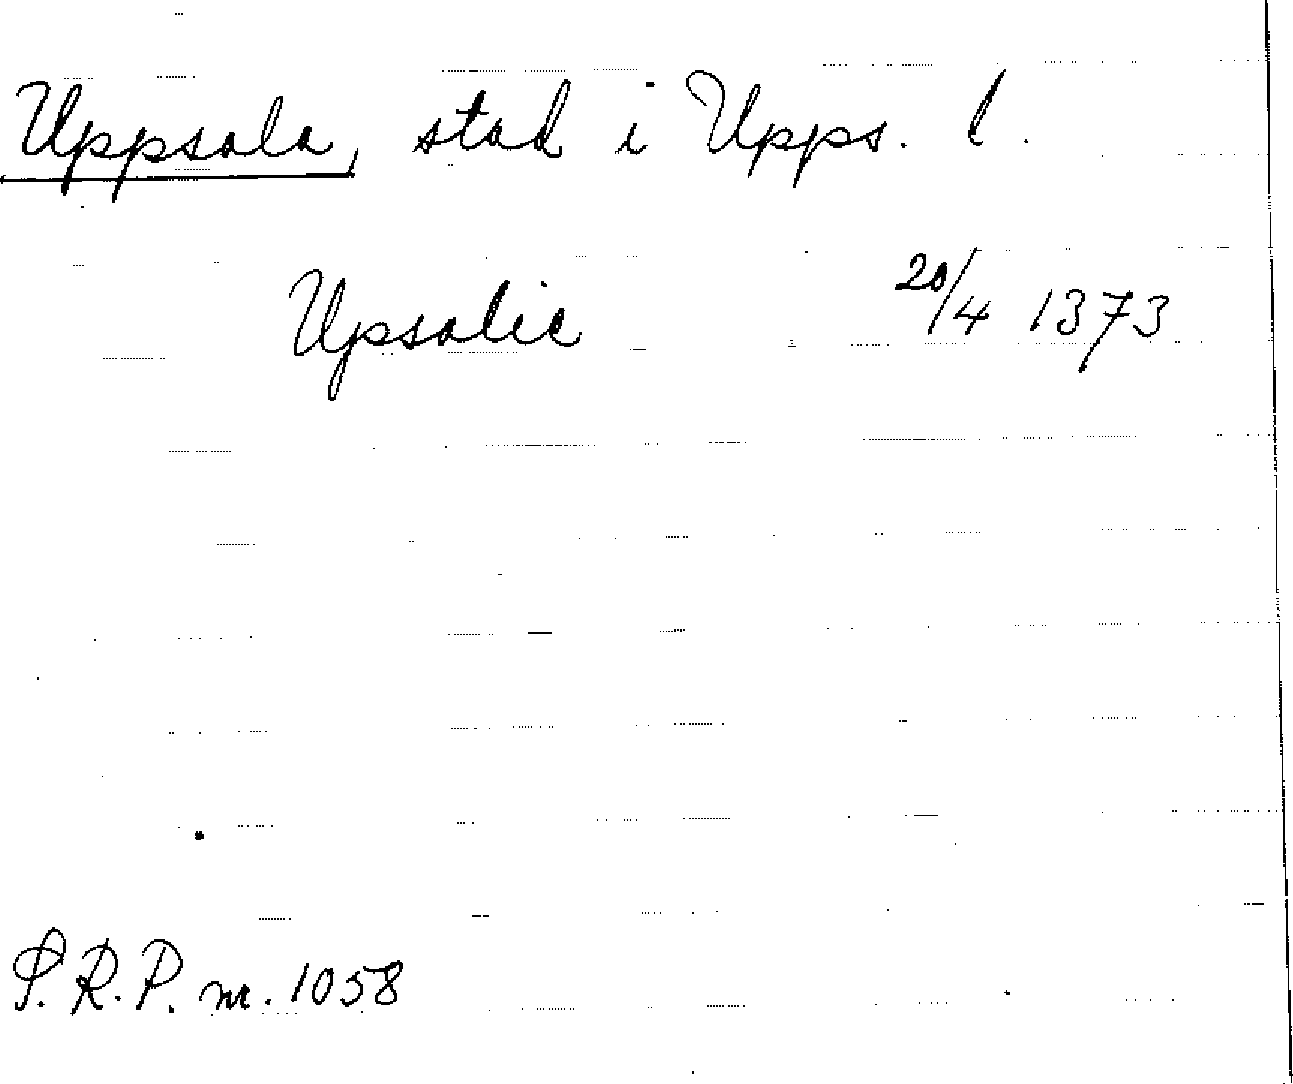 Uppsala, stad i Upps. l.
Upsalie 20/4 1373
S.R.P. nr. 1058